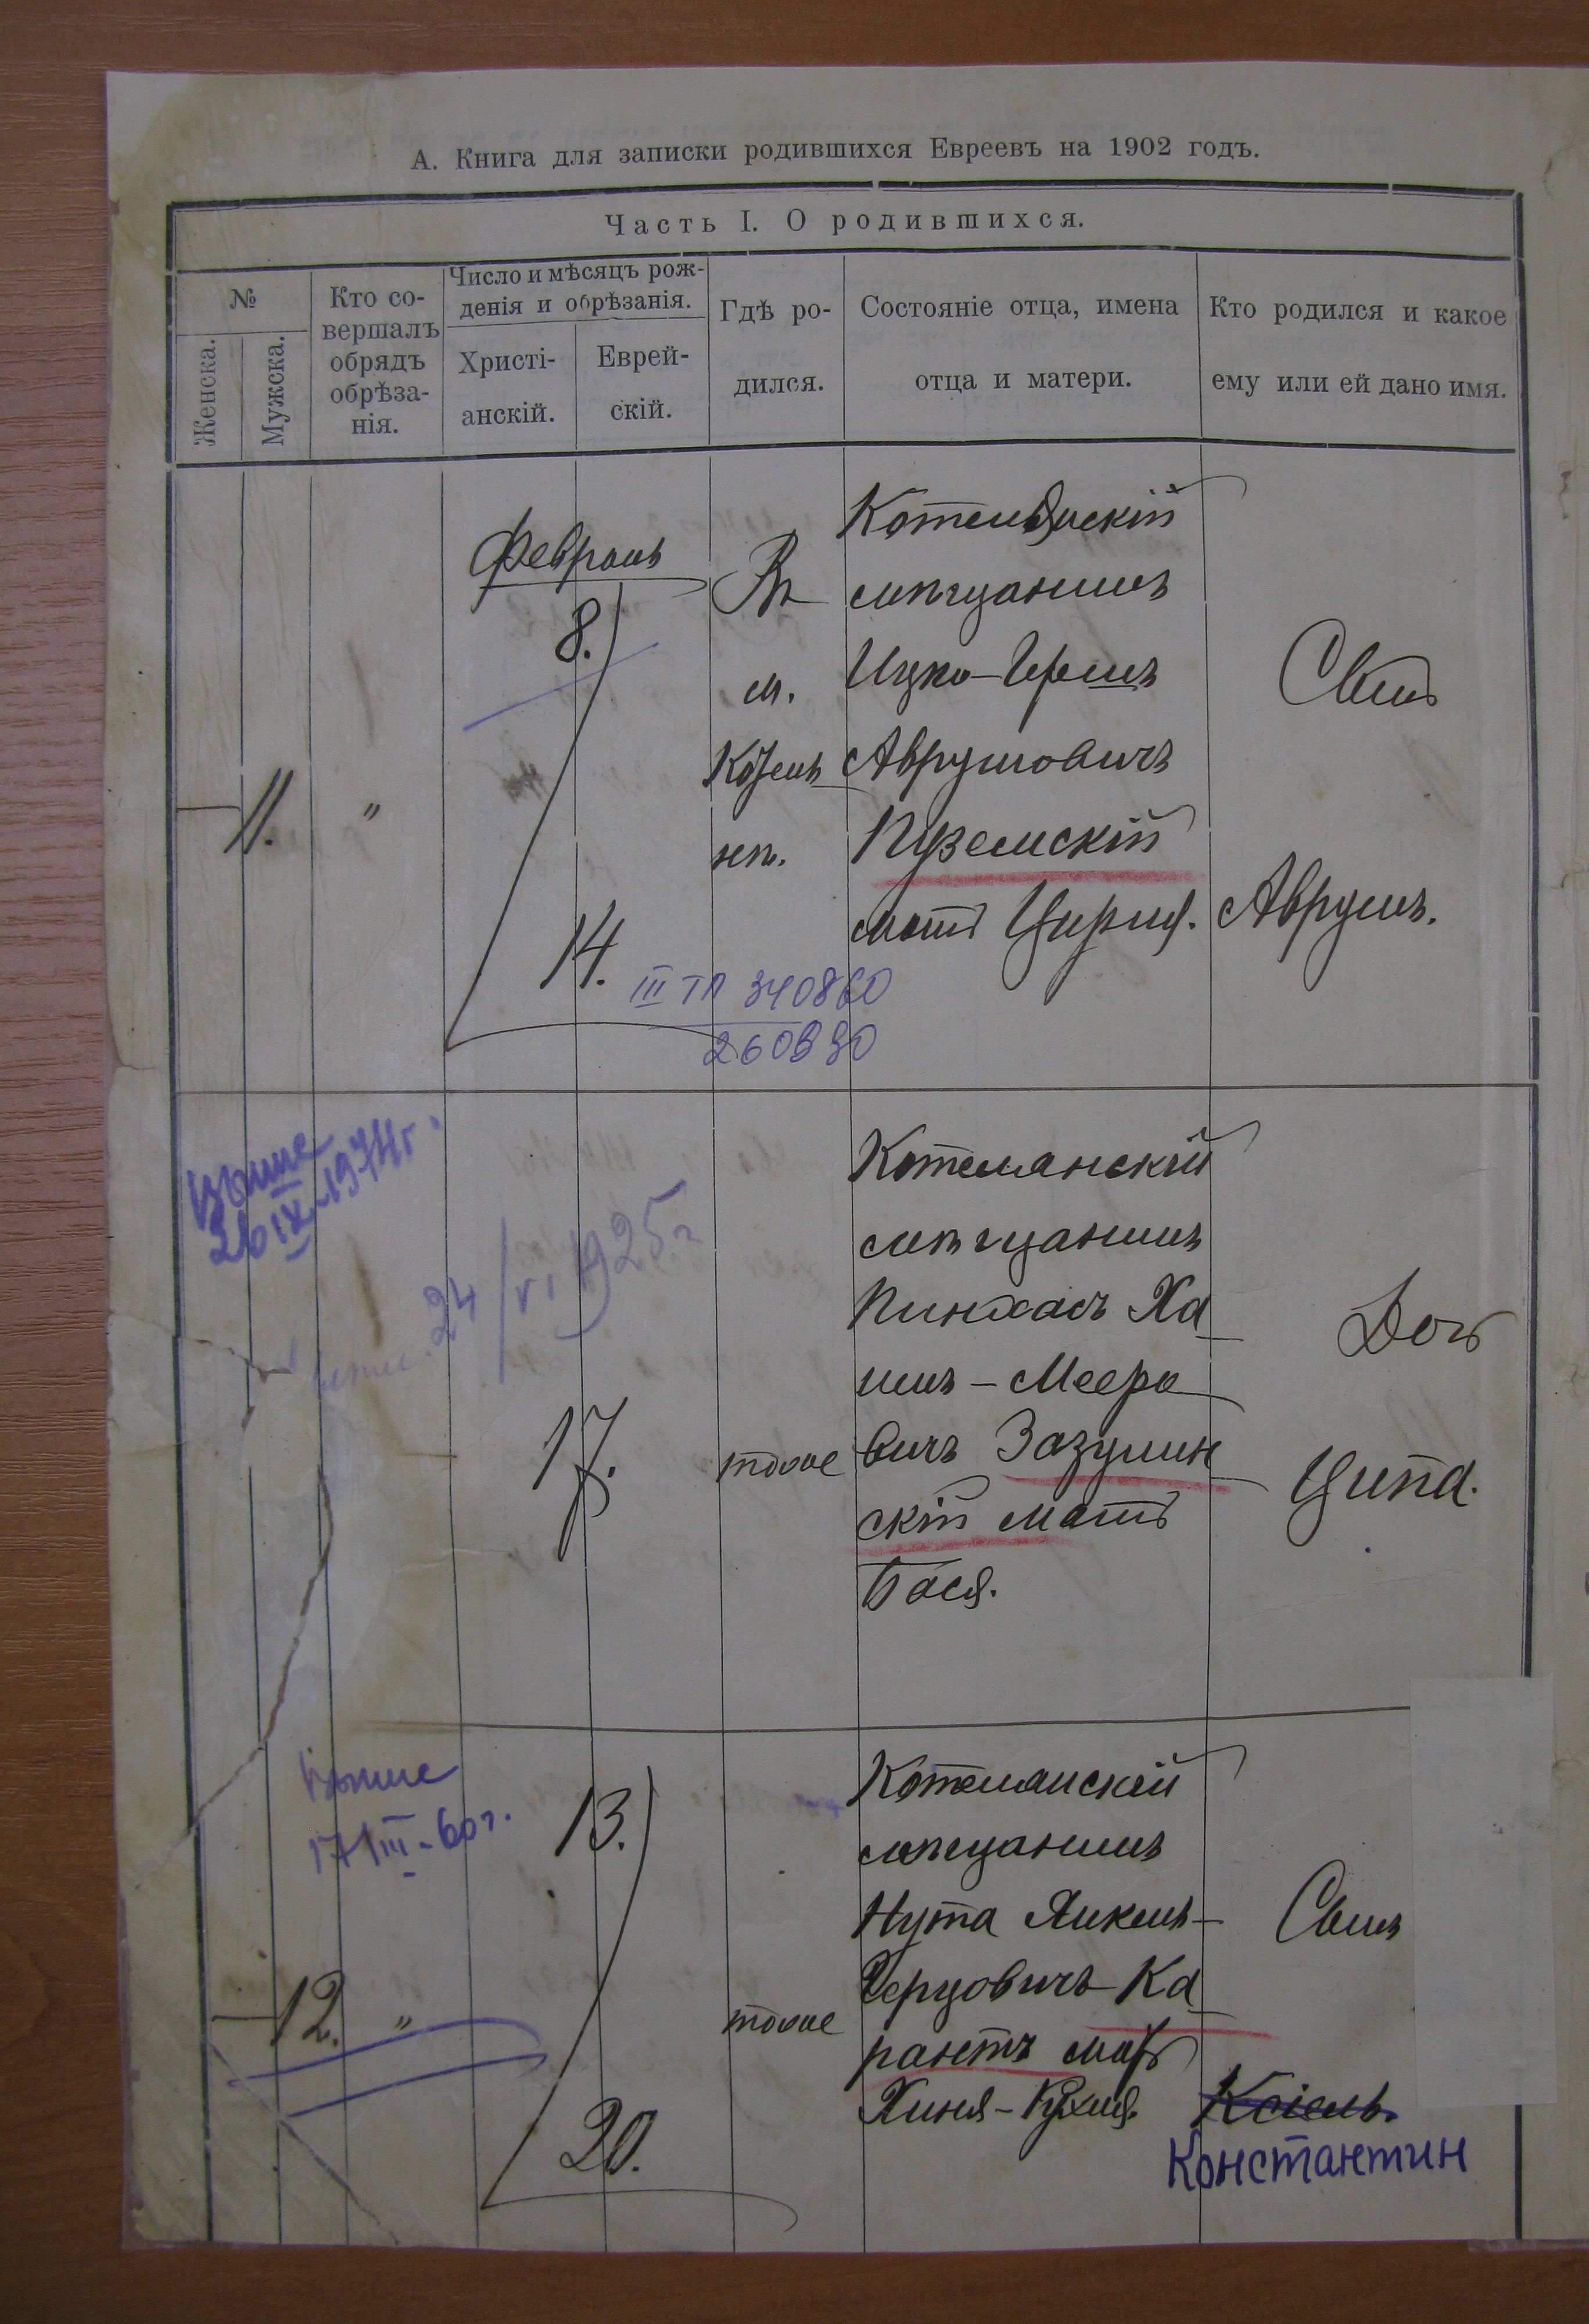 А. Книга для записки родившихся Евреевъ на 1902 годъ.
Часть I. О родившихся.
№
Женска.
Мужска.
Кто со-
вершалъ
обрядъ
обрѣза-
нія.
Число и мѣсяцъ рож-
денія и обрѣзанія.
Христі-
анскій.
Еврей-
скій.
Гдѣ ро-
дился.
Состояніе отца, имена
отца и матери.
Кто родился и какое
ему или ей дано имя.
11.
"
Февраль
8.
14.
Въ
м.
Котель
нѣ.
Котелянскій
мѣщанинъ
Ицко-Гершъ
Аврумовичъ
Пуземскій
мать Цирля.
Сынъ
Аврумъ.
III ТП 340860
260890
26 IX-1974г.
24/VI 1925г
17.
тоже
Котелянскій
мѣщанинъ
Пинхасъ Ха
имъ-Мееро
вичъ Зазулин
скій мать
Бася.
Дочь
Ципа.
17/III-60г.
12.
"
13.
20.
тоже
Котелянскій
мѣщанинъ
Нута Янкель-
Герцовичъ Ка
рантъ мать
Хиня-Рухля.
Сынъ
Ксіель.
Константин